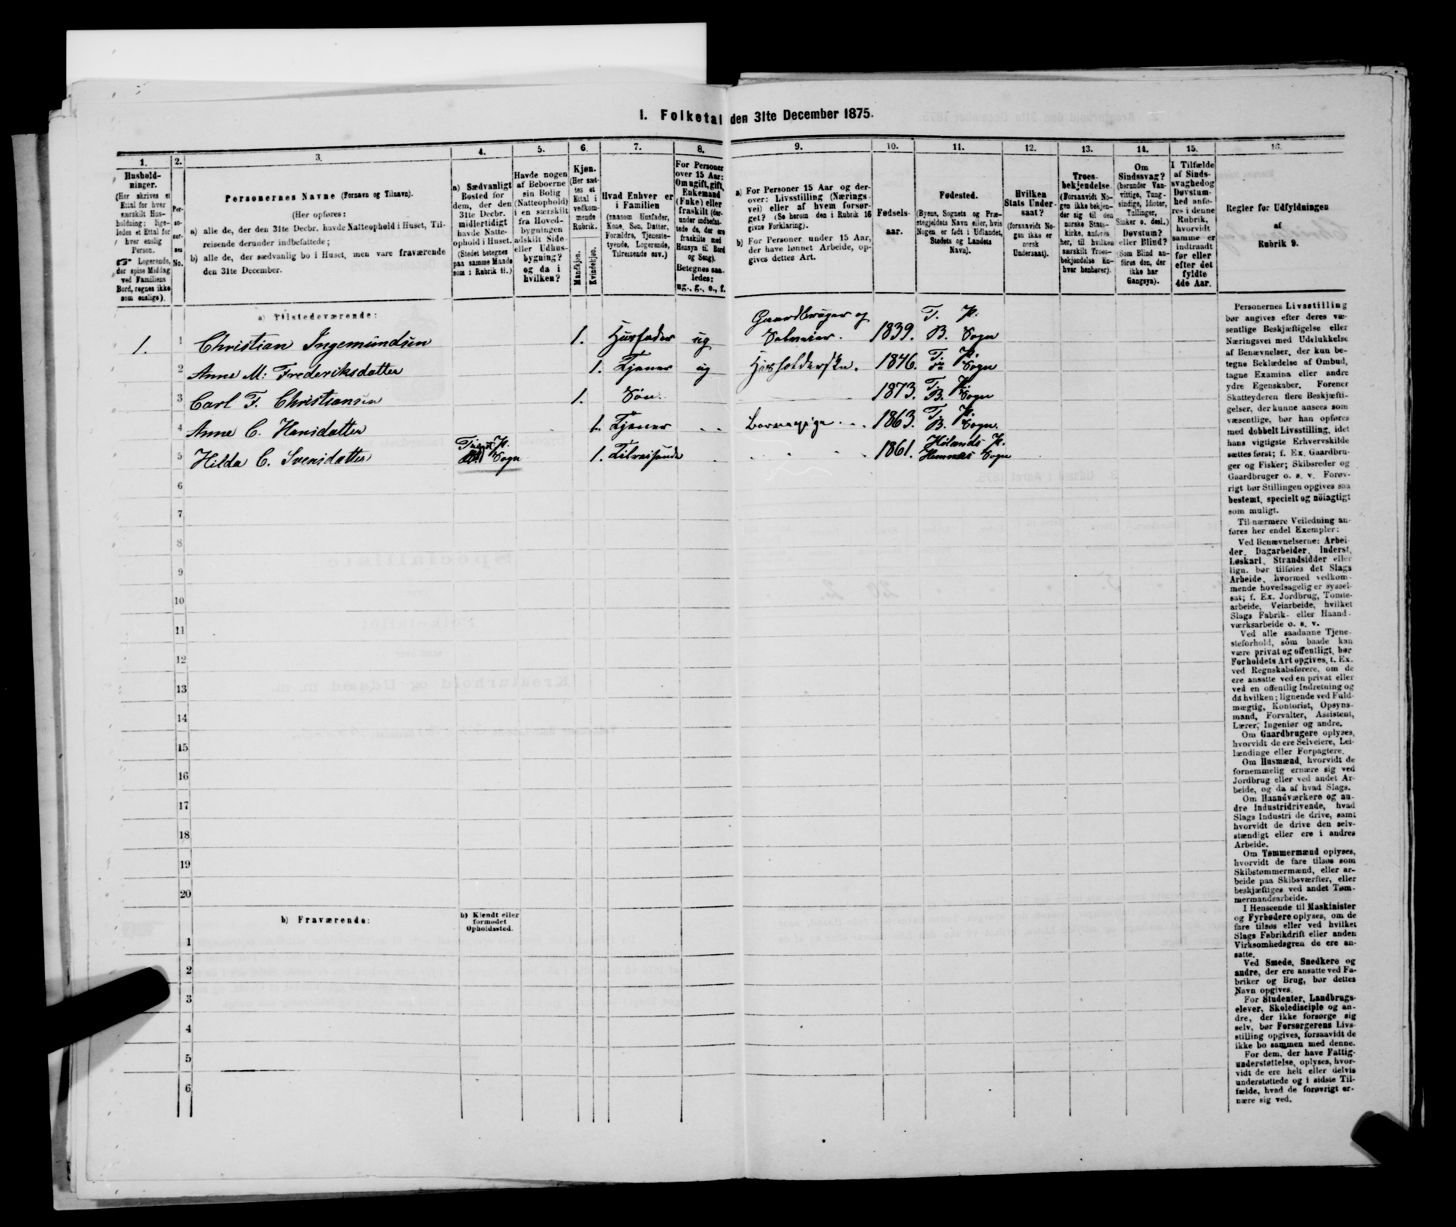 I. Folketal den 31te December 1875.
1.
2.
3.
4.
5.
6.
7.
8.
9.
10.
11.
12.
13.
14.
15.
16.
Hushold-
ninger.
(Her skrives et
Ettal for hver
særskilt Hus-
holdning; lige-
ledes et Ettal for
hver enslig
Person.
☞ Logerende,
der spise Middag
ved Familiens
Bord, regnes ikke
som enslige).
Per-
so-
ner-
nes
No.
Personernes Navne (Fornavn og Tilnavn).
(Her opføres:
a) alle de, der den 31te Decbr. havde Natteophold i Huset, Til-
reisende derunder indbefattede;
b) alle de, der sædvanlig bo i Huset, men vare fraværende
den 31te December.
a) Sædvanligt
Bosted for
dem, der den
31te Decbr.
midlertidigt
havde Natte-
ophold i Huset.
(Stedet betegnes
paa samme Maade
som i Rubrik 11.)
Havde nogen
af Beboerne
sin Bolig
(Natteophold)
i en særskilt
fra Hoved-
bygningen
adskilt Side-
eller Udhus-
bygning?
og da i
hvilken?
Kjøn.
(Her sæt-
tes et
Ettal i
vedkom-
mende
Rubrik.)
Mandkjøn.
Kvindekjøn.
Hvad Enhver er
i Familien
(saasom Husfader,
Kone, Søn, Datter,
Forældre, Tjeneste-
tyende, Logerende,
Tilreisende osv.)
For Personer
over 15 Aar:
Om ugift, gift,
Enkemand
(Enke) eller
fraskilt (der-
under indbefat-
tede de, der ere
fraskilte med
Hensyn til Bord
og Seng).
Betegnes saa-
ledes:
ug., g., e., f.
a) For Personer 15 Aar og der-
over: Livsstilling (Nærings-
vei) eller af hvem forsør-
get? (Se herom den i Rubrik 16
givne Forklaring).
b) For Personer under 15 Aar,
der have lønnet Arbeide, op-
gives dettes Art.
Fødsels-
aar.
Fødested.
(Byens, Sognets og Præ-
stegjeldets Navn eller, hvis
Nogen er født i Udlandet,
Stedets og Landets
Navn).
Hvilken
Stats Under-
saat?
(forsaavidt No-
gen ikke er
norsk
Undersaat).
Troes-
bekjendelse.
(Forsaavidt No-
gen ikke bekjen-
der sig til den
norske Stats-
kirke, anføres
her, til hvilken
særskilt Troes-
bekjendelse En-
hver henhører).
Om
Sindssvag?
(herunder Van-
vittige, Tung-
sindige, Idioter,
Tullinger,
Sinker o. desl.)
Døvstum?
eller Blind?
(Som Blind an-
føres den, der
ikke har
Gangsyn).
I Tilfælde
af Sinds-
svaghed og
Døvstum-
hed anfø-
res i denne
Rubrik,
hvorvidt
samme er
indtraadt
før eller
efter det
fyldte
4de Aar.
Regler for Udfyldningen
af
Rubrik 9.
a) Tilstedeværende:
1. 1 Christian Ingemundsen 1. Husfader ug Gaardbruger og Selveier. 1839. T. P. B. Sogn
2 Anne M. Frederiksdatter 1. Tjener ug Husholderske. 1846. T. P. Sogn
3 Carl F. Christiansen 1. Søn. 1873. T. P. B. Sogn
4 Anne C. Hansdatter 1. Tjener Barnepige 1863. T. P. B. Sogn
5 Hilda C. Svensdatter P. Sogn 1. Tilreisende 1861. Hølands P. Hemnæs Sogn
6
7
8
9
10
11
12
13
14
15
16
17
18
19
20
b) Fraværende:
b) Kjendt eller
formodet
Opholdssted.
1
2
3
4
5
6
Personernes Livsstilling
bør angives efter deres væ-
sentlige Beskjæftigelse eller
Næringsvei med Udelukkelse
af Benævnelser, der kun be-
tegne Beklædelse af Ombud,
tagne Examina eller andre
ydre Egenskaber. Forener
Skatteyderen flere Beskjæfti-
gelser, der kunne ansees som
væsentlige, bør han opføres
med dobbelt Livsstilling, idet
hans vigtigste Erhvervskilde
sættes først; f. Ex. Gaardbru-
ger og Fisker; Skibsreder og
Gaardbruger o. s. v. Forøv-
rigt bør Stillingen opgives saa
bestemt, specielt og nøiagtigt
som muligt.
Til nærmere Veiledning an-
føres her endel Exempler:
Ved Benævnelserne: Arbei-
der, Dagarbeider, Inderst,
Løskarl, Strandsidder eller
lign. bør tilføies det Slags
Arbeide, hvormed vedkom-
mende hovedsagelig er syssel-
sat; f. Ex. Jordbrug, Tomte-
arbeide, Veiarbeide, hvilket
Slags Fabrik- eller Haand-
værksarbeide o. s. v.
Ved alle saadanne Tjene-
steforhold, som baade kan
være privat og offentligt, bør
Forholdets Art opgives, t. Ex.
ved Regnskabsførere, om de
ere ansatte ved en privat eller
ved en offentlig Indretning og
da hvilken; lignende ved Fuld-
mægtig, Kontorist, Opsyns-
mand, Forvalter, Assistent,
Lærer, Ingeniør og andre.
Om Gaardbrugere oplyses,
hvorvidt de ere Selveiere, Lei-
lændinge eller Forpagtere.
Om Husmænd, hvorvidt de
fornemmelig ernære sig ved
Jordbrug eller ved andet Ar-
beide, og da af hvad Slags.
Om Haandværkere og an-
dre Industridrivende, hvad
Slags Industri de drive, samt
hvorvidt de drive den selv-
stændigt eller ere i andres
Arbeide.
Om Tømmermænd oplyses,
hvorvidt de fare tilsøs som
Skibstømmermænd, eller ar-
beide paa Skibsværfter, eller
beskjæftiges ved andet Tøm-
mermandsarbeide.
I Henseende til Maskinister
og Fyrbødere oplyses, om de
fare tilsøs eller ved hvilket
Slags Fabrikdrift eller anden
Virksomhedsgren de ere an-
satte.
Ved Smede, Snedkere og
andre, der ere ansatte ved Fa-
briker og Brug, bør dettes
Navn opgives.
For Studenter, Landbrugs-
elever, Skoledisciple og an-
dre, der ikke forsørge sig
selv, bør Forsørgerens Livs-
stilling opgives, forsaavidt de
ikke bo sammen med denne.
For dem, der have Fattig-
understøttelse, oplyses, hvor-
vidt de ere helt eller delvis
understøttede og i sidste Til-
fælde, hvad de forøvrigt er-
nære sig ved.